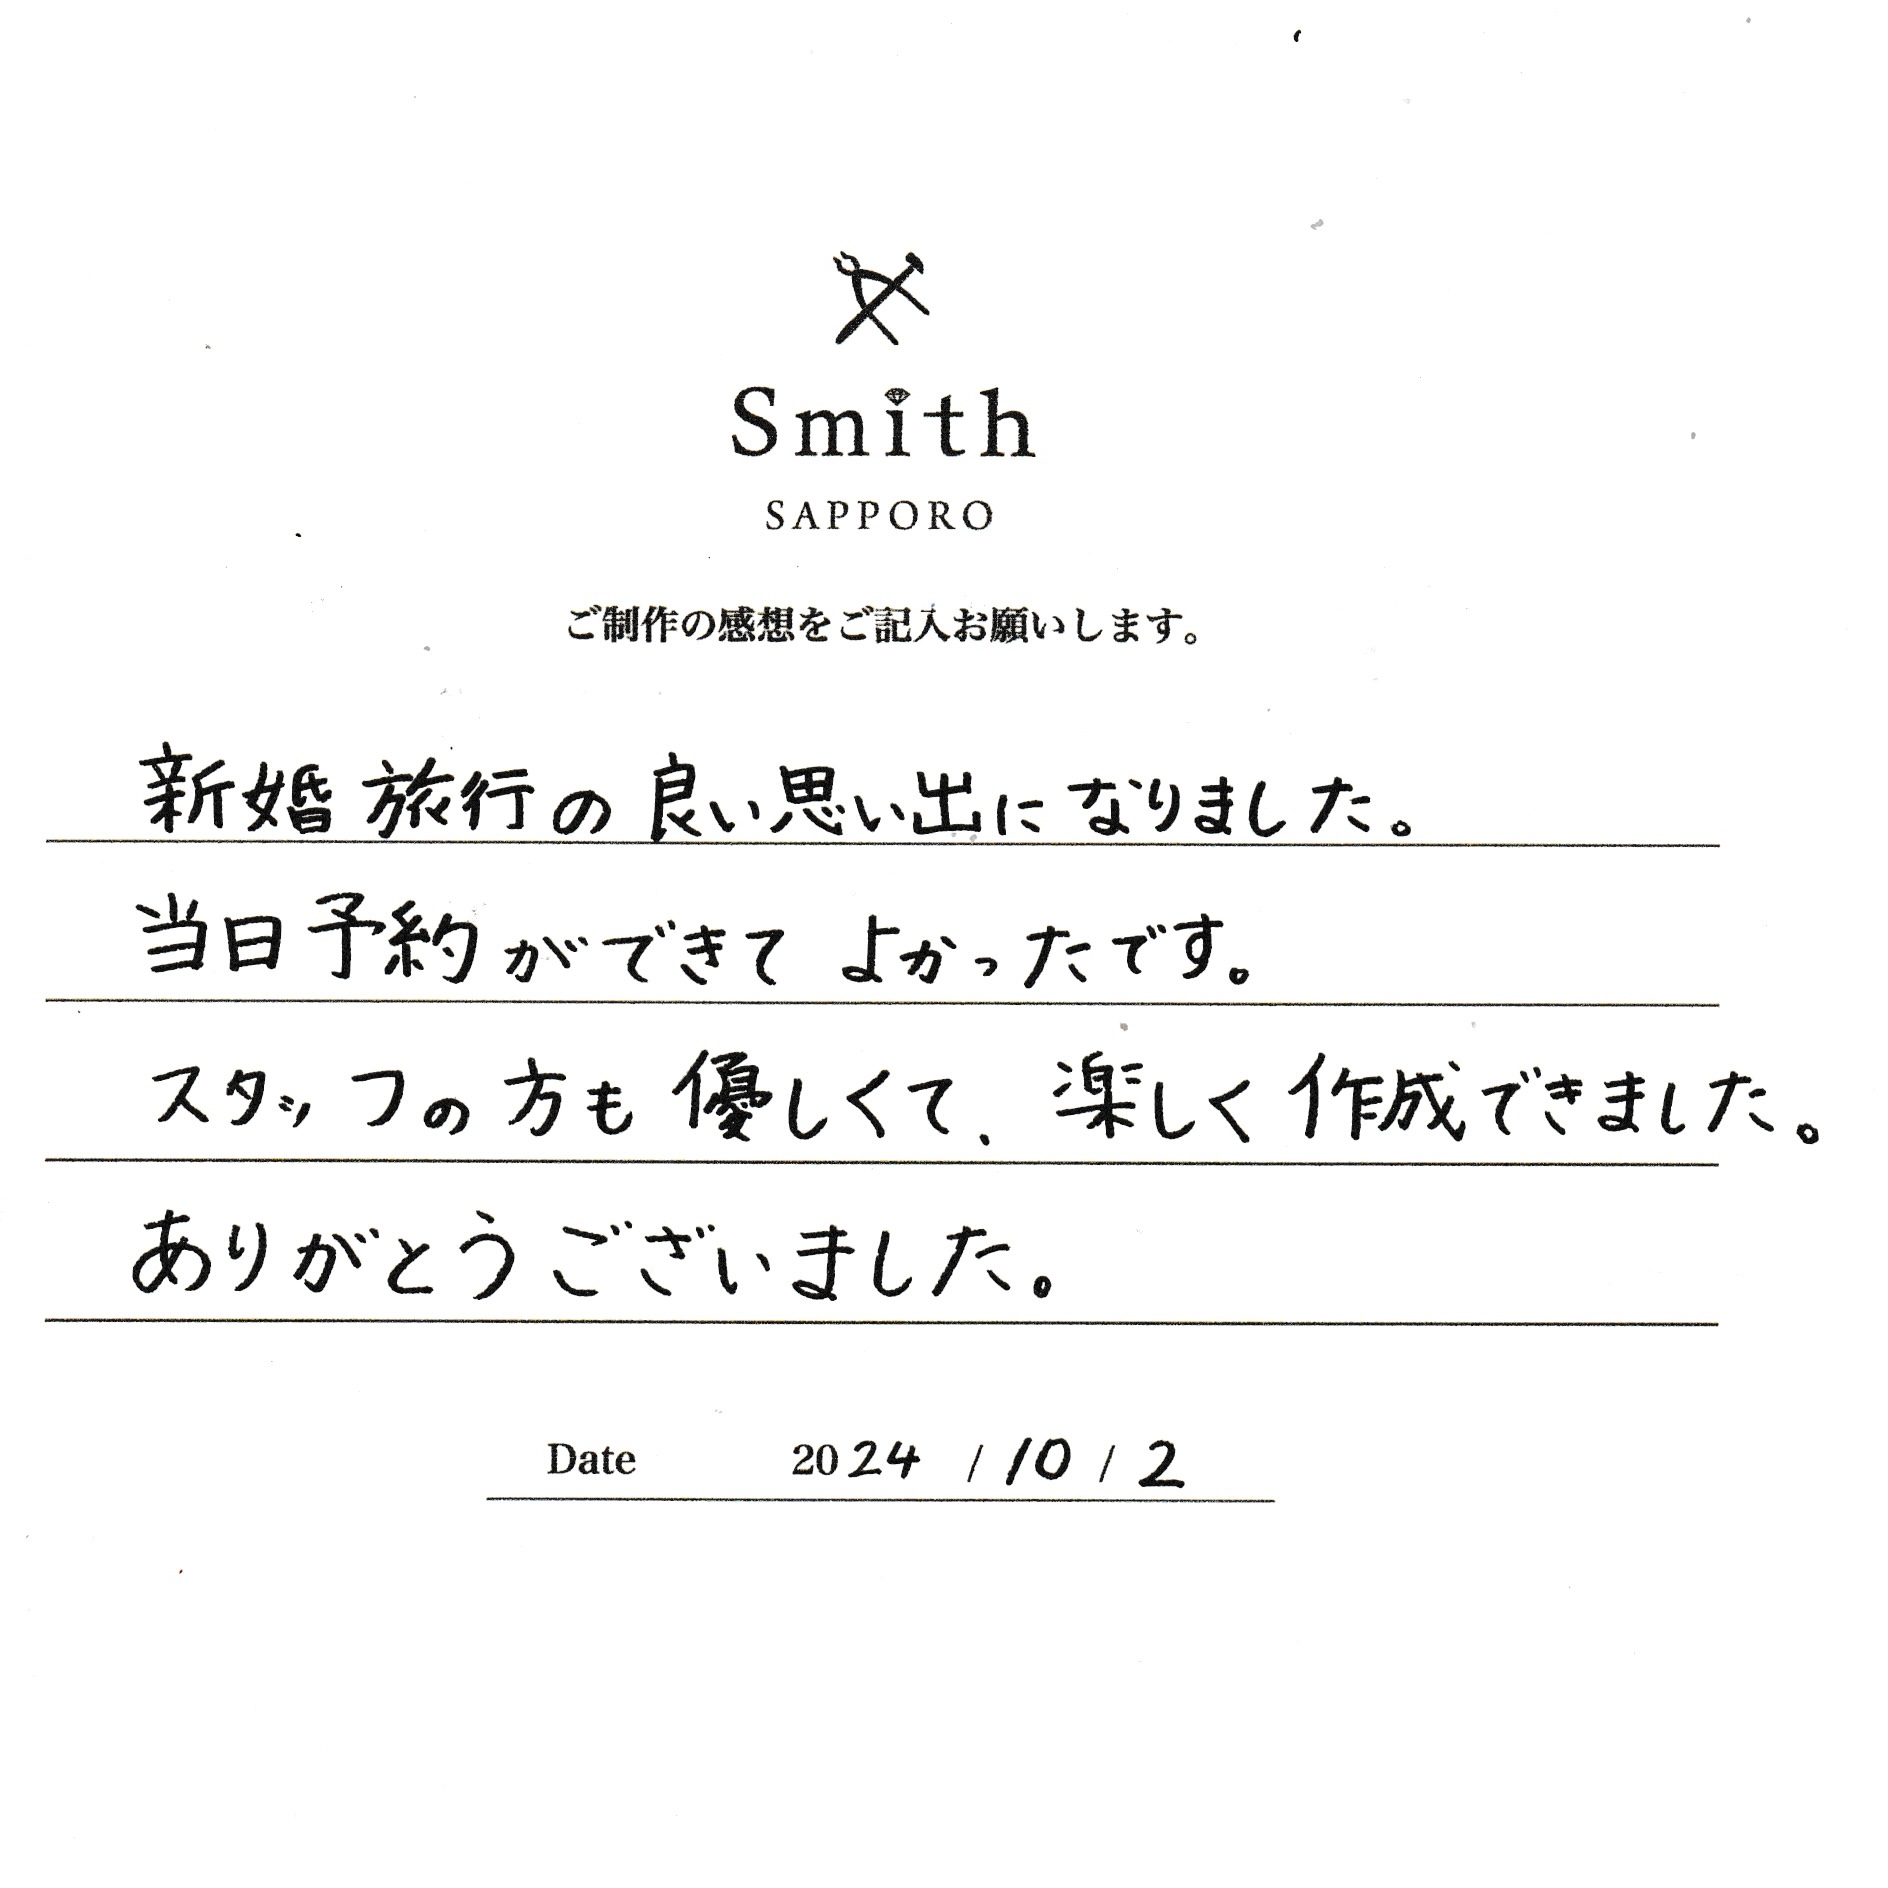 Smith
SAPPORO
ご制作の感想をご記入お願いします。
新婚旅行の良い思い出になりました。
当日予約ができてよかったです。
スタッフの方も優しくて、楽しく作成できました。
ありがとうございました。
Date 2024 / 10 / 2